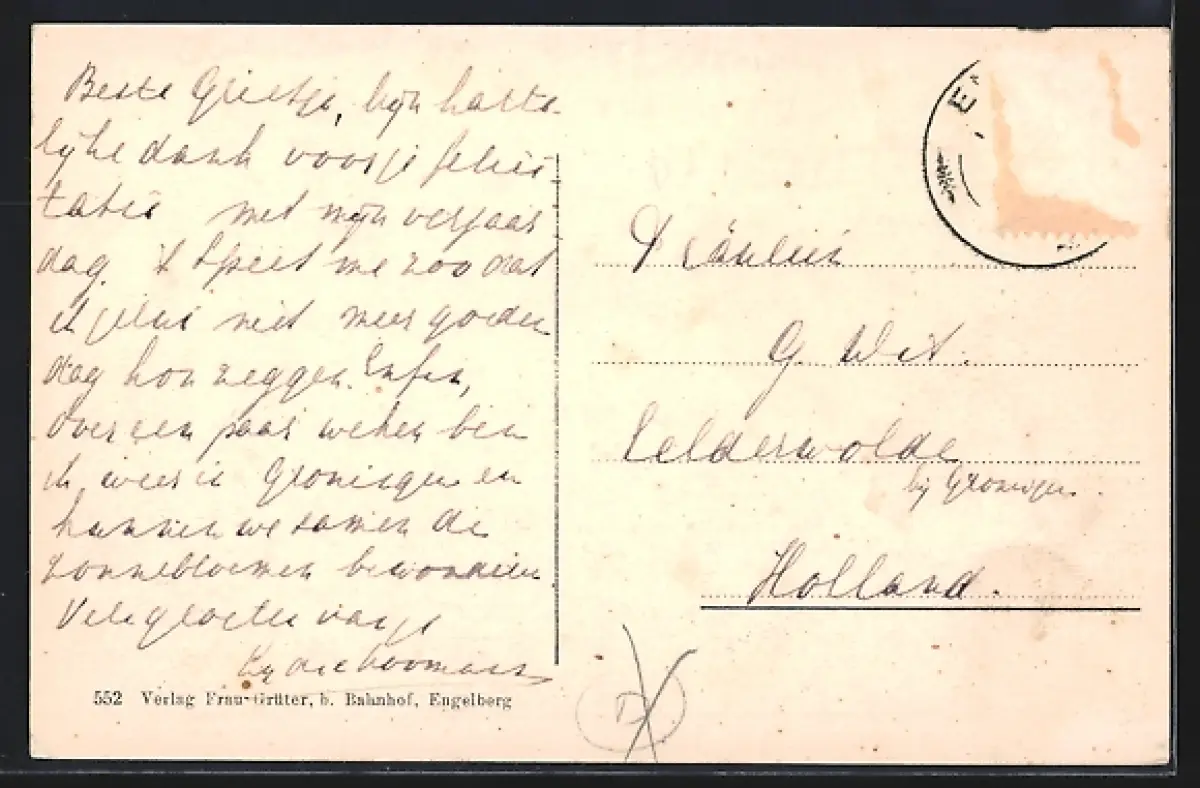 Beste Grietje, Mijn harte-
lijke dank voor je felici
tatie met mijn verjaar
dag. 't Speet me zoo dat
ik jelui niet meer goeden
dag kon zeggen. Enfin,
over een paar weken ben
ik weer in Groningen en
kunnen we samen de
zonnebloemen bewonderen.
Vele groeten van je
552 Verlag Frau Grüter, b. Bahnhof, Engelberg
E
Fräulein
G Wit.
Eelderwolde
bij Groningen.
Holland.